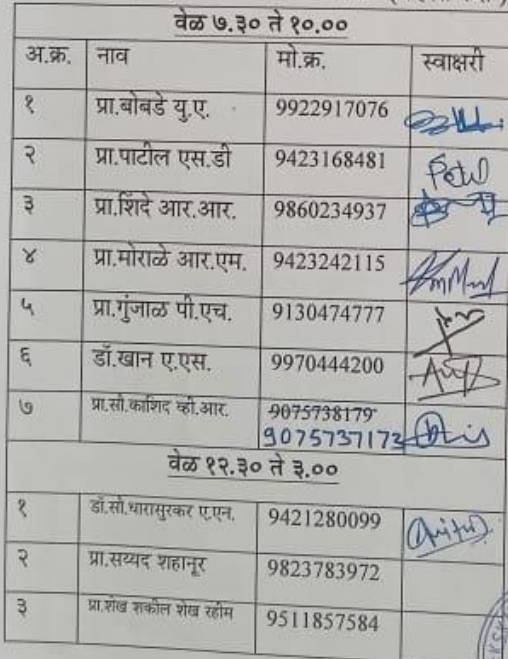 वेळ ७.३० ते १०.००
अ.क्र. नाव मो.क्र. स्वाक्षरी
१ प्रा.बोबडे यु.ए. 9922917076
२ प्रा.पाटील एस.डी 9423168481
३ प्रा.शिंदे आर.आर. 9860234937
४ प्रा.मोराळे आर.एम. 9423242115
५ प्रा.गुंजाळ पी.एच. 9130474777
६ डॉ.खान ए.एस. 9970444200
७ प्रा.सौ.काशिद व्ही.आर. 9075738179
9075737173
वेळ १२.३० ते ३.००
१ डॉ.सौ.धारासुरकर ए.एन. 9421280099
२ प्रा.सय्यद शहानूर 9823783972
३ प्रा.शेख शकील शेख रहीम 9511857584